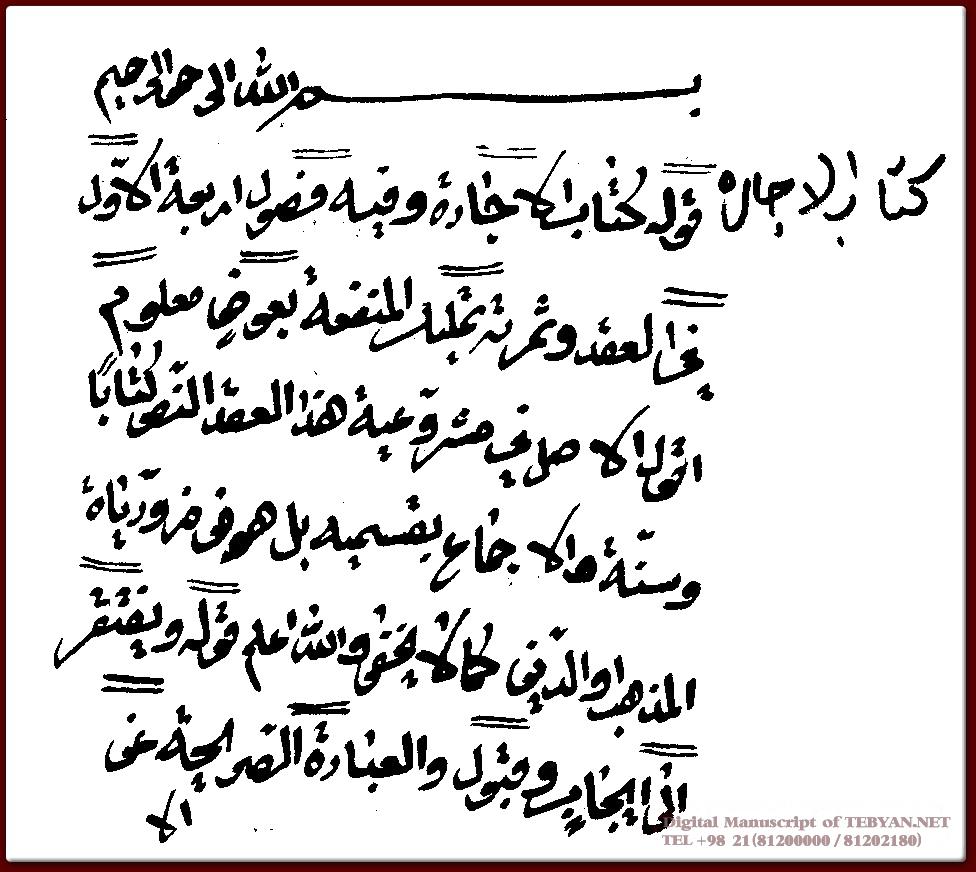 بسم الله الرحمن الرحيم
كتاب الاجاره
قوله كتاب الاجارة وفيه فصول اربعة الاوّل
في العقد وثمرته تمليك المنفعة بعوضٍ معلوم
اقول الاصل في مشروعية هذا العقد النصّ كتابًا
وسنّة والاجماع بقسميه بل هو في ضروريّات
المذهب او الدّين كما لا يخفى والله اعلم قوله ويفتقر
الى ايجابٍ وقبول والعبارة الصّريحة عن
الا
Digital Manuscript of TEBYAN.NET
TEL +98 21(81200000 / 81202180)